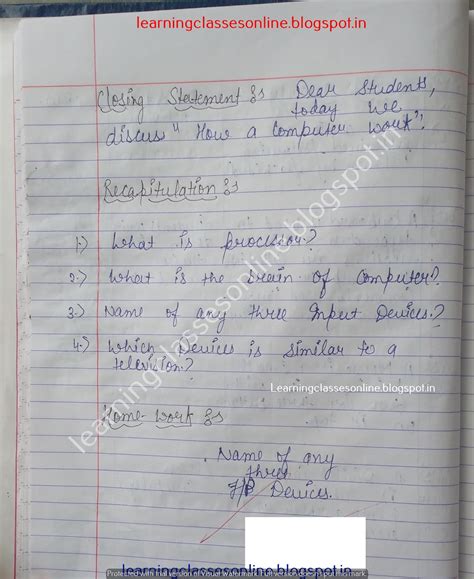 learningclassesonline.blogspot.in
Closing Statement :- Dear Students,
today we
discuss "How a Computer work".
Recapitulation :-
1.) What is procission.?
2.) What is the brain of Computer?
3.) Name of any three Input Devices.?
4.) Which Devices is similar to a
television.?
Learningclassesonline.blogspot.in
Home-Work :-
Name of any
three
I/P Devices.
learningclassesonline.blogspot.in
learningclassesonline.blogspot.in